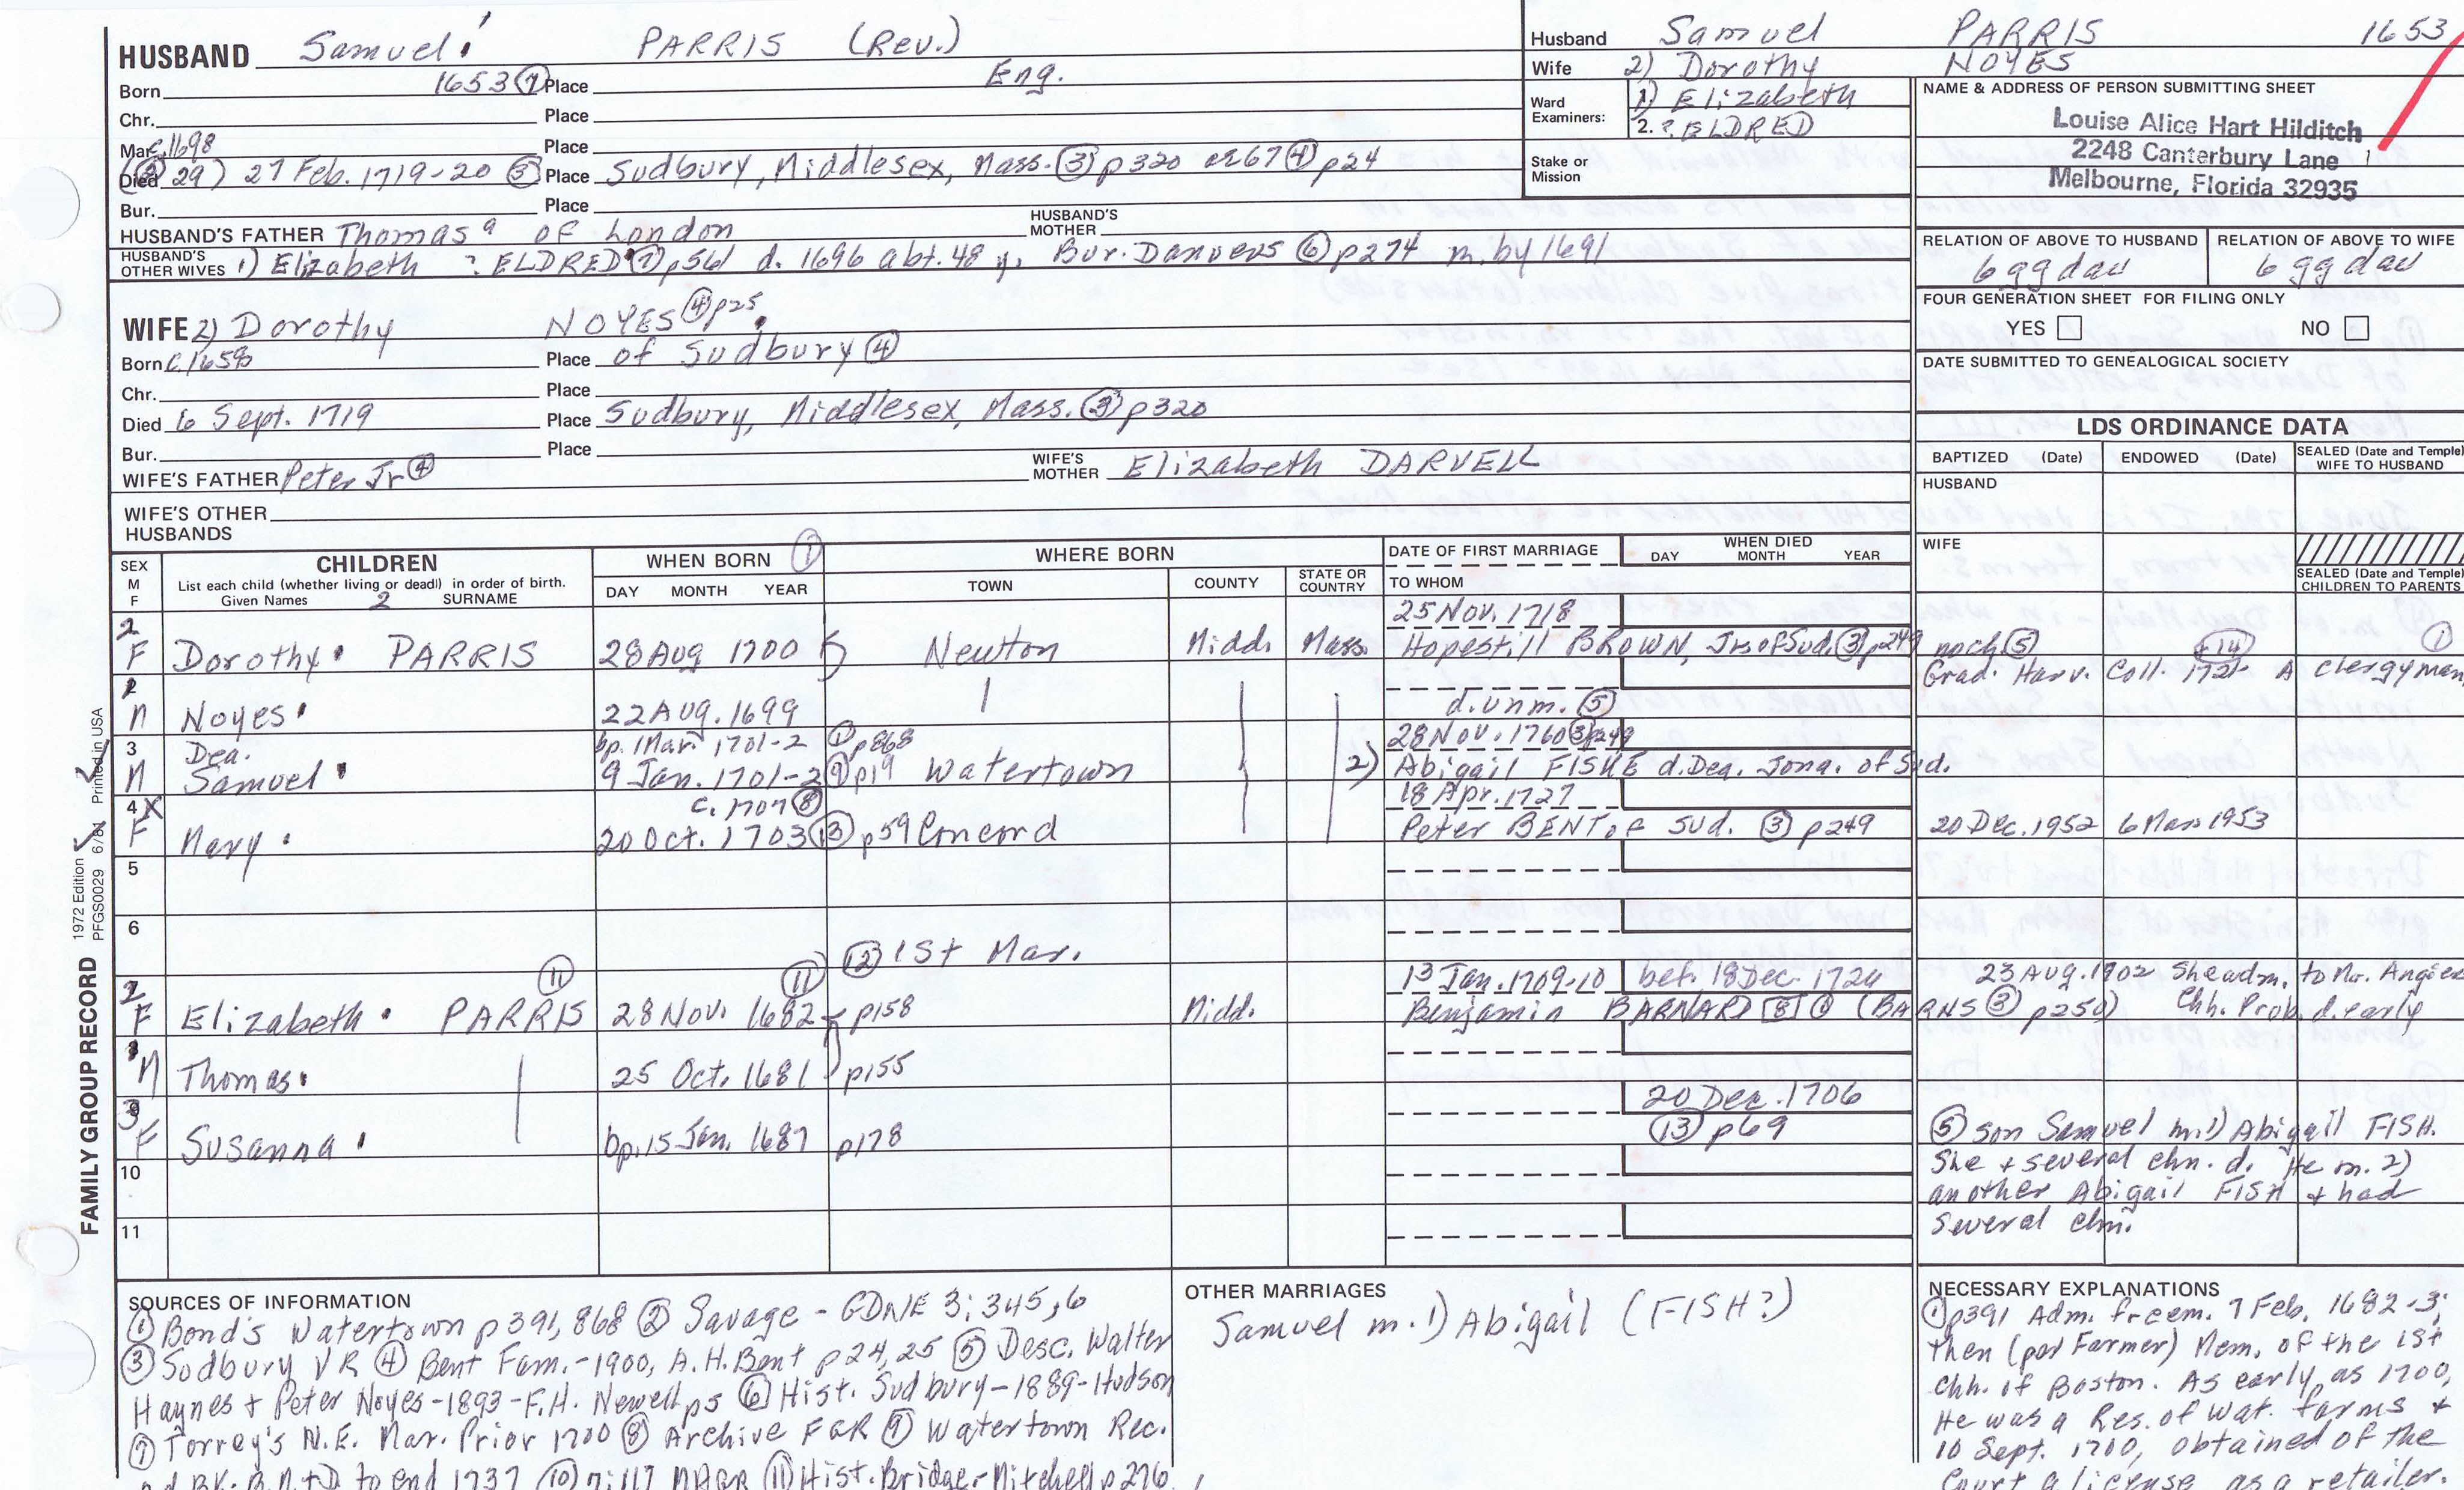 HUSBAND Samuel PARRIS (Rev.)
Born 1653 (7) Place Eng.
Chr. Place
Mar. c.1698 Place
Died (2) 29) 27 Feb. 1719-20 (5) Place Sudbury, Middlesex, Mass. (3) p320 (4) p24
Bur. Place
HUSBAND'S FATHER Thomas of London HUSBAND'S MOTHER
HUSBAND'S OTHER WIVES 1) Elizabeth ? ELDRED (7) p561 d. 1696 abt. 48 y. Bur. Danvers (6) p274 m. by 1691
WIFE 2) Dorothy NOYES (4) p25
Born Place of Sudbury (4)
Chr. Place
Died 6 Sept. 1719 Place Sudbury, Middlesex, Mass. (3) p320
Bur. Place
WIFE'S FATHER Peter Jr (4) WIFE'S MOTHER Elizabeth DARVELL
WIFE'S OTHER HUSBANDS
Husband Samuel PARRIS 1653
Wife 2) Dorothy NOYES
Ward Examiners: 1) Elizabeth
2. ? ELDRED
Stake or Mission
NAME & ADDRESS OF PERSON SUBMITTING SHEET
Louise Alice Hart Hilditch
2248 Canterbury Lane
Melbourne, Florida 32935
RELATION OF ABOVE TO HUSBAND RELATION OF ABOVE TO WIFE
6 gg dau 6 gg dau
FOUR GENERATION SHEET FOR FILING ONLY
YES NO
DATE SUBMITTED TO GENEALOGICAL SOCIETY
LDS ORDINANCE DATA
BAPTIZED (Date) ENDOWED (Date) SEALED (Date and Temple) WIFE TO HUSBAND
HUSBAND
WIFE
SEALED (Date and Temple) CHILDREN TO PARENTS
SEX M F CHILDREN WHEN BORN (1) WHERE BORN DATE OF FIRST MARRIAGE WHEN DIED
List each child (whether living or dead) in order of birth. DAY MONTH YEAR TOWN COUNTY STATE OR COUNTRY TO WHOM DAY MONTH YEAR
Given Names 2 SURNAME
25 Nov. 1718
2 F Dorothy PARRIS 28 Aug 1700 Newton Midd. Mass. Hopestill BROWN, Jr. of Sud. (3) p249 noch (5)
Grad. Harv. Coll. 1721 +14 A clergyman, (1)
M Noyes 22 Aug. 1699 d. unm. (5)
bp. 1 Mar. 1701-2 (1) p868 28 Nov. 1760 (3) p249
3 M Dea. Samuel 9 Jan. 1701-2 (9) p19 Watertown 2) Abigail FISKE d. Dea. Jona. of Sud.
c. 1707 (8) 18 Apr. 1727
4 X F Mary 20 Oct. 1703 (13) p59 Concord Peter BENT of Sud. (3) p249 20 Dec. 1952 6 Mar 1953
5
6
(12) 1st Mar.
(11) (11) 13 Jan. 1709-10 bef. 18 Dec. 1724 23 Aug. 1702 She adm. to Mr. Angier
F Elizabeth PARRIS 28 Nov. 1682 p158 Midd. Benjamin BARNARD (BARNS (3) p250) Chh. Prob. d. early
M Thomas 25 Oct. 1681 p155
20 Dec. 1706
F Susanna bp. 15 Jan. 1687 p178 (13) p69
(5) son Samuel m. 1) Abigail FISH.
She + several chn. d. He m. 2)
another Abigail FISH + had
several chn.
10
11
FAMILY GROUP RECORD 1972 Edition PFGS0029 6/81 Printed in USA
SOURCES OF INFORMATION
(1) Bond's Watertown p391, 868 (2) Savage - GDNE 3: 345, 6
(3) Sudbury VR (4) Bent Fam. - 1900, A. H. Bent p24, 25 (5) Desc. Walter
Haynes + Peter Noyes - 1893 - F.H. Newell p5 (6) Hist. Sudbury - 1889 - Hudson
(7) Torrey's N.E. Mar. Prior 1700 (8) Archive FGR (9) Watertown Rec.
BK. B. M + D to end 1737 (10) (11) Hist. Bridge - Mitchell p276
OTHER MARRIAGES
Samuel m. 1) Abigail (FISH?)
NECESSARY EXPLANATIONS
(1) p391 Adm. freem. 7 Feb. 1682-3;
then (per Farmer) Mem. of the 1st
Chh. of Boston. As early as 1700,
He was a Res. of Wat. farms +
10 Sept. 1700, obtained of the
Court a license as a retailer.